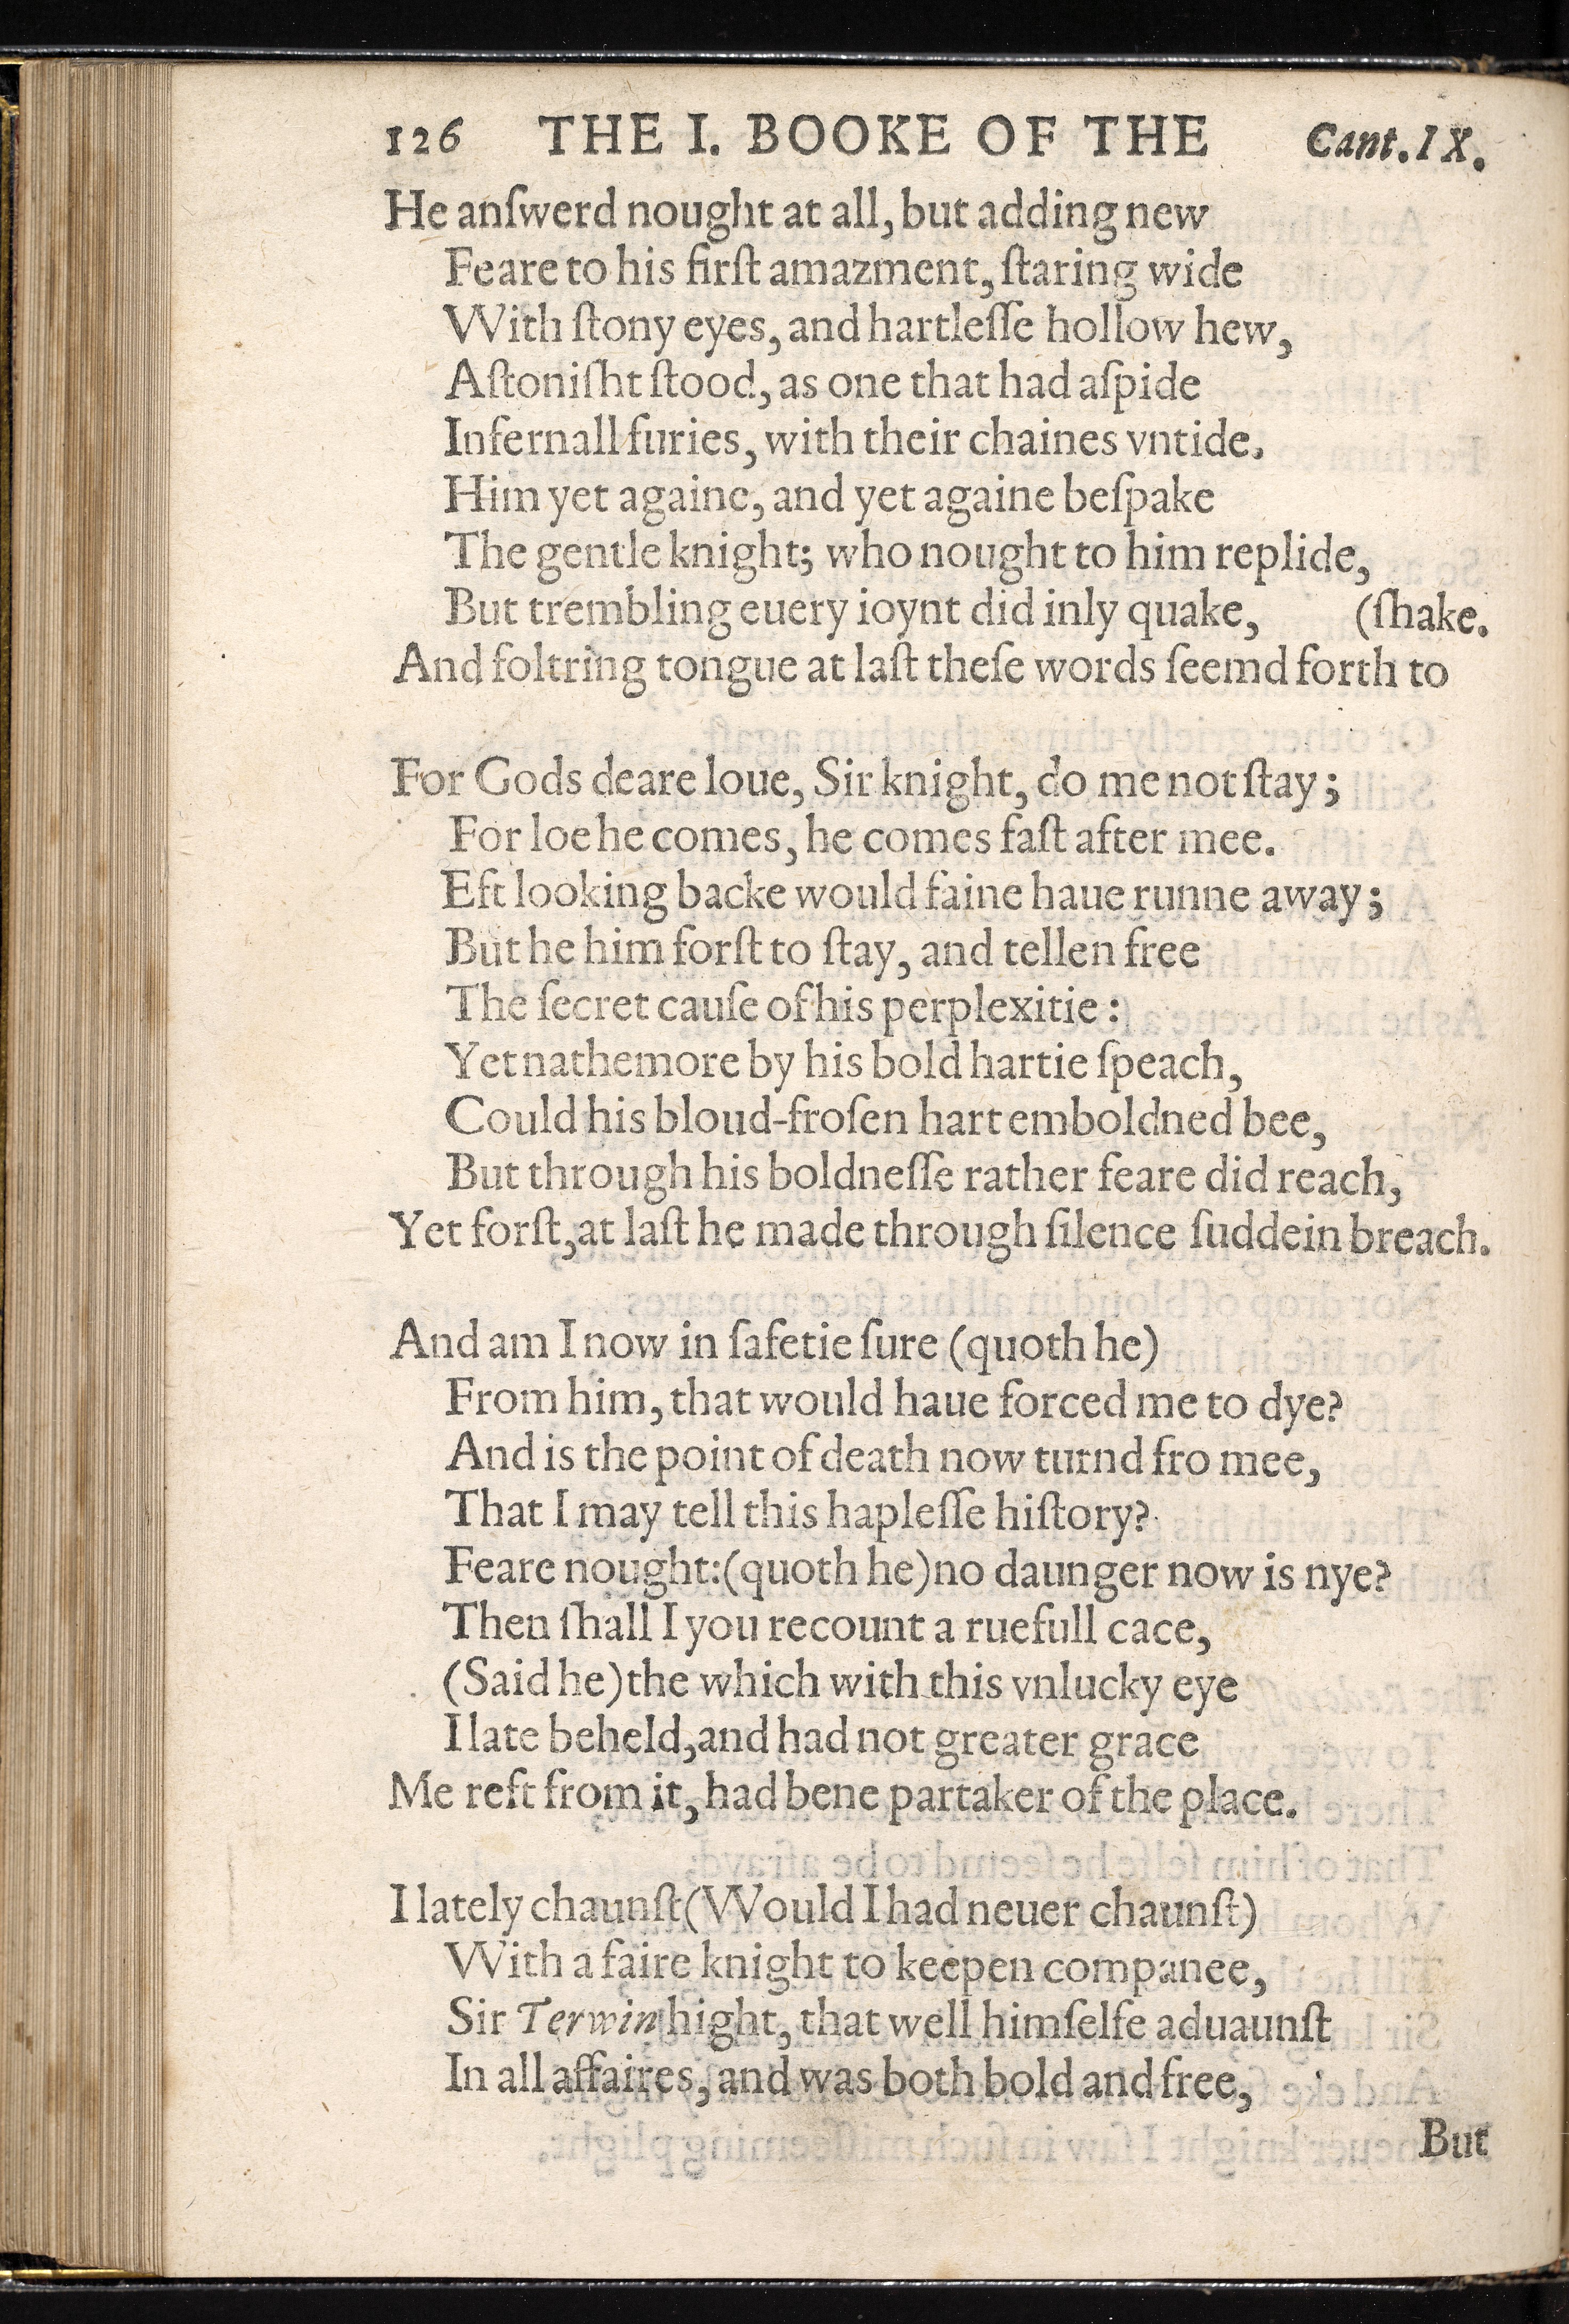 126 THE I. BOOKE OF THE Cant. IX.
He anſwerd nought at all, but adding new
Feare to his firſt amazment, ſtaring wide
With ſtony eyes, and hartleſſe hollow hew,
Aſtoniſht ſtood, as one that had aſpide
Infernall furies, with their chaines vntide.
Him yet againe, and yet againe beſpake
The gentle knight; who nought to him replide,
But trembling euery ioynt did inly quake, (ſhake.
And foltring tongue at laſt theſe words ſeemd forth to
For Gods deare loue, Sir knight, do me not ſtay;
For loe he comes, he comes faſt after mee.
Eft looking backe would faine haue runne away;
But he him forſt to ſtay, and tellen free
The ſecret cauſe of his perplexitie:
Yet nathemore by his bold hartie ſpeach,
Could his bloud-froſen hart emboldned bee,
But through his boldneſſe rather feare did reach,
Yet forſt, at laſt he made through ſilence ſuddein breach.
And am I now in ſafetie ſure (quoth he)
From him, that would haue forced me to dye?
And is the point of death now turnd fro mee,
That I may tell this hapleſſe hiſtory?
Feare nought: (quoth he) no daunger now is nye?
Then ſhall I you recount a ruefull cace,
(Said he) the which with this vnlucky eye
I late beheld, and had not greater grace
Me reft from it, had bene partaker of the place.
I lately chaunſt (Would I had neuer chaunſt)
With a faire knight to keepen companee,
Sir Terwin hight, that well himſelfe aduaunſt
In all affaires, and was both bold and free,
But